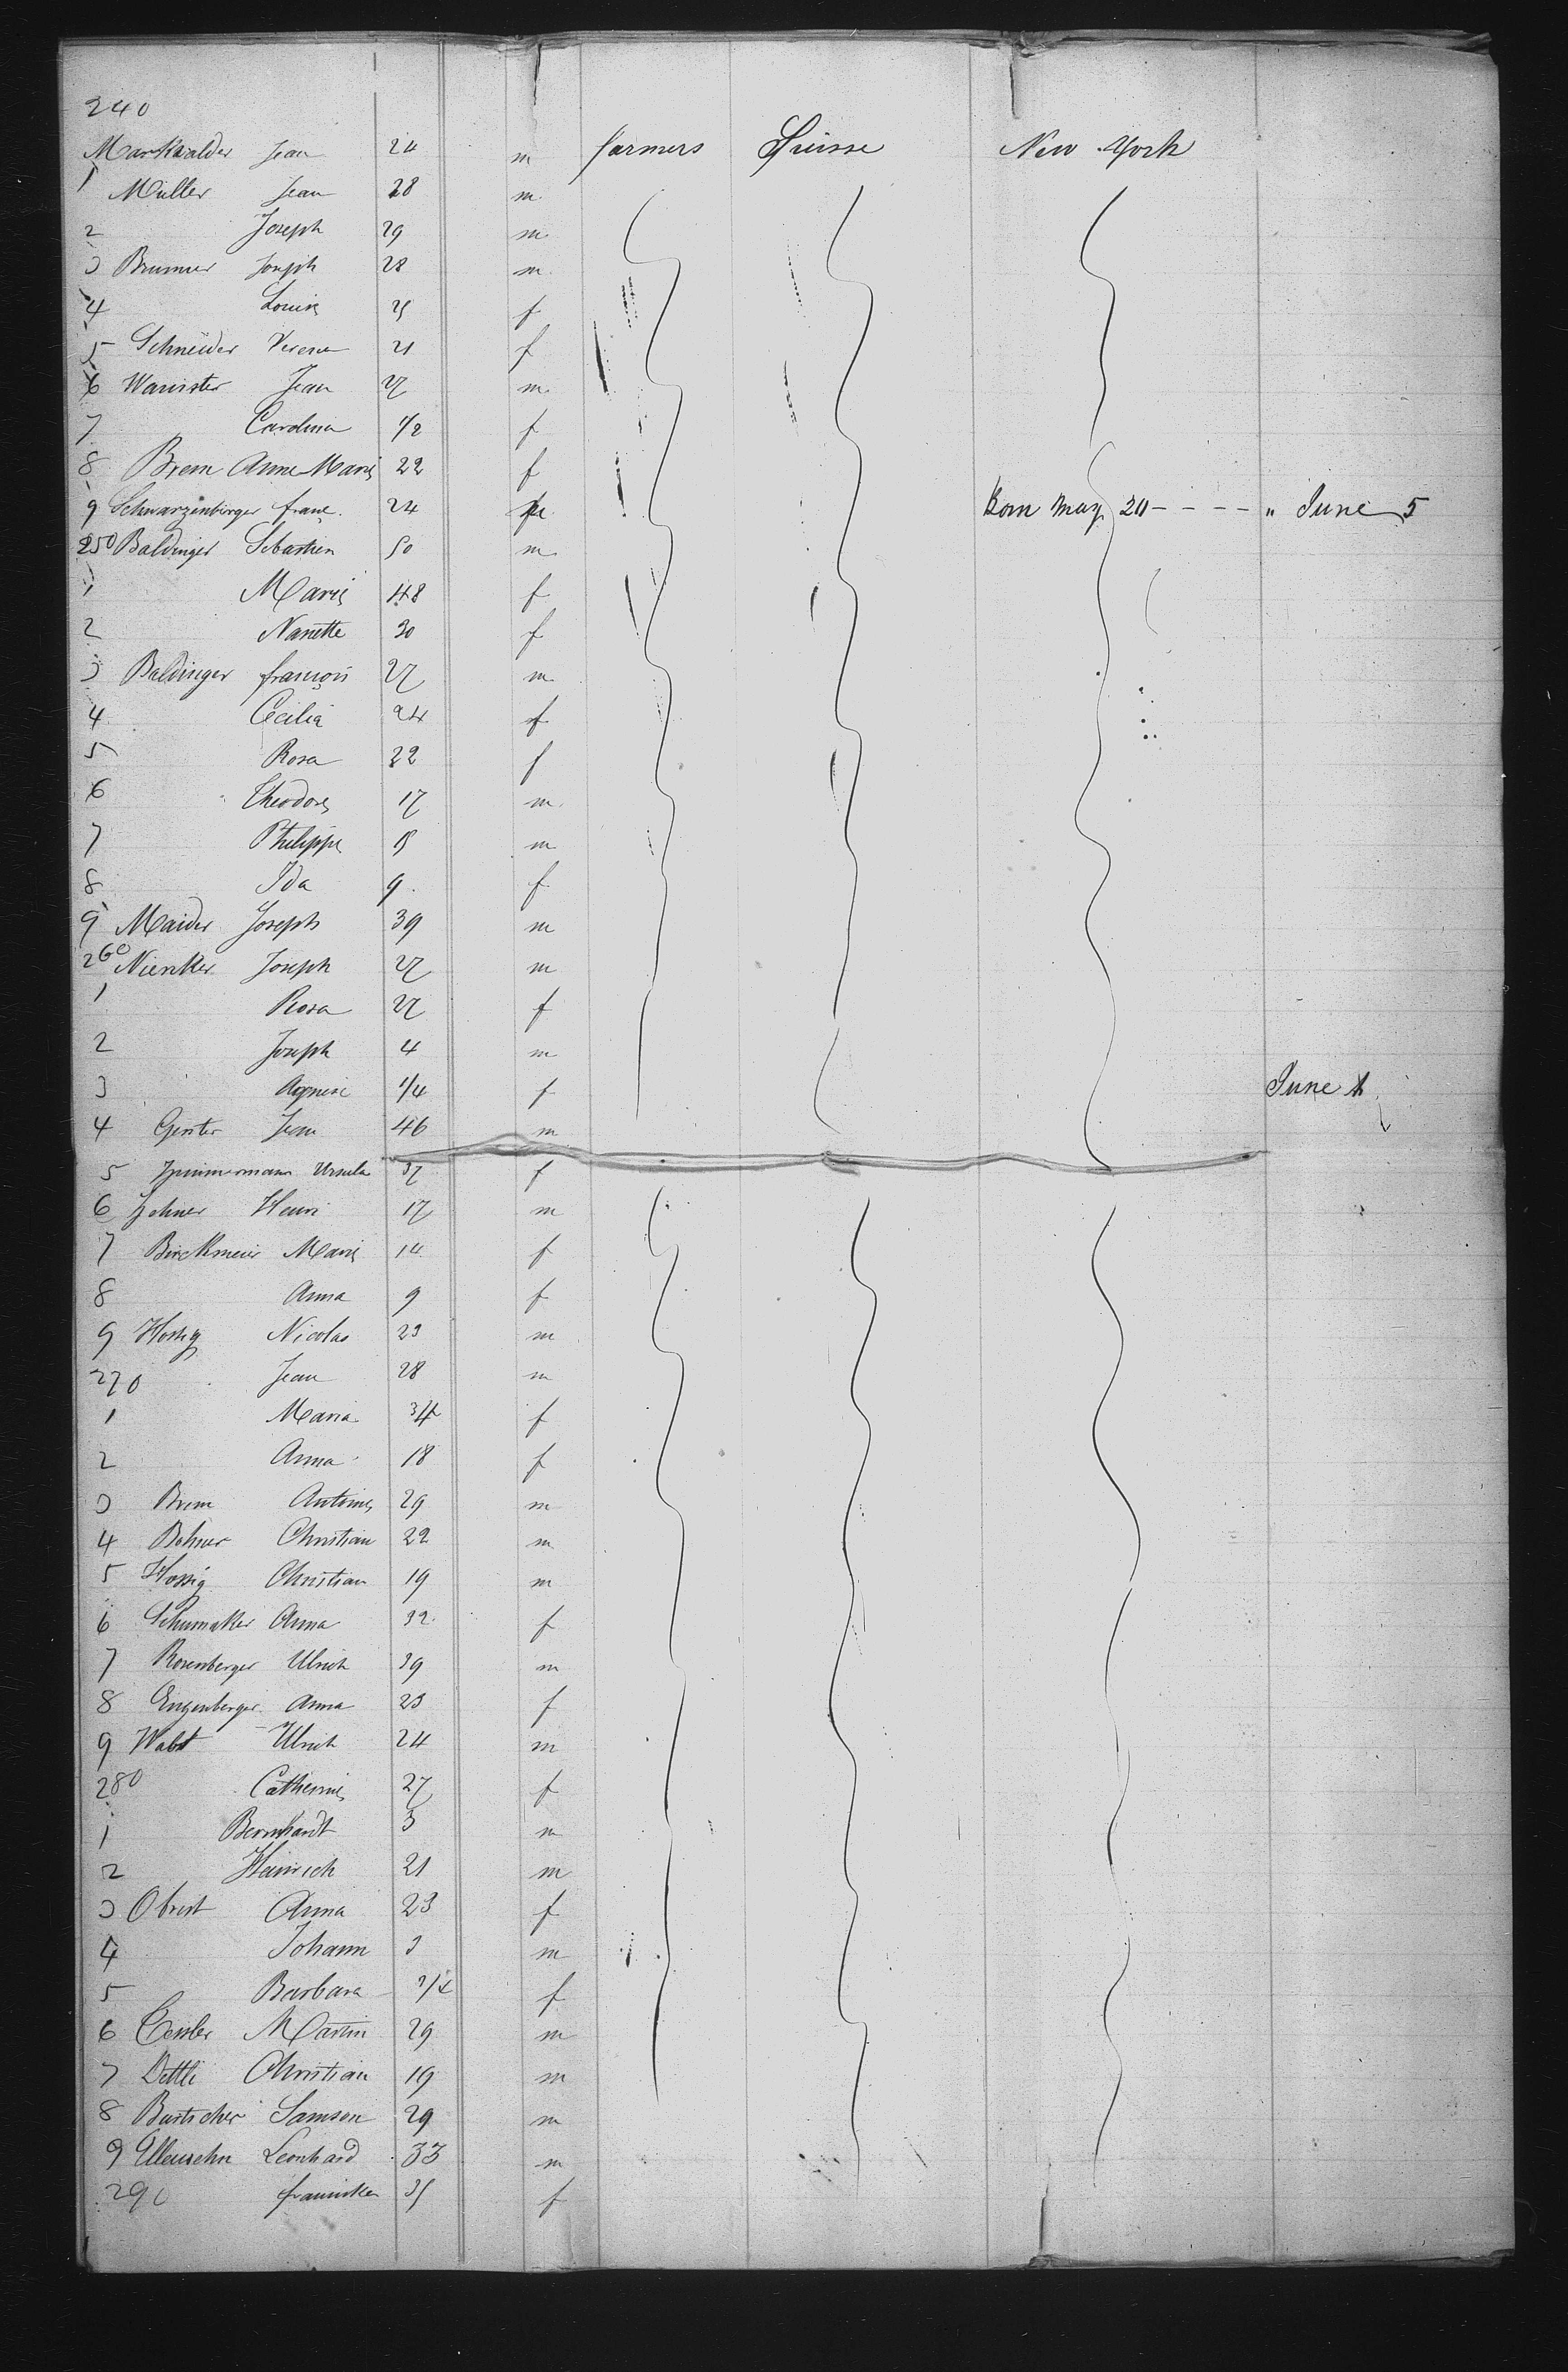 240
Markwalder Jean 24 m farmers Suisse New York
1 Muller Jean 28 m
2 Joseph 29 m
3 Brunner Joseph 28 m
4 Louise 25 f
5 Schneider Verena 21 f
6 Jean 27 m
7 Carolina 1/2 f
8 Brem Anne Marie 22 f
9 Schwarzenberger franç. 24 Born May 20 - - - - " June 5
250 Baldinger Sebastien 50 m
1 Marie 48 f
2 Nanette 30 f
3 Baldinger françois 27 m
4 Cecilia 24 f
5 Rosa 22 f
6 Theodore 17 m
7 Philippe 15 m
8 Ida 9 f
9 Maider Joseph 39 m
260 Nienker Joseph 27 m
1 Rosa 27 f
2 Joseph 4 m
3 Agnese 1/4 f June 1
4 Genter Jean 46 m
5 Zimmermann Ursula 37 f
6 Zehner Henri 17 m
7 Birckmeier Marie 14 f
8 Anna 9 f
9 Hossig Nicolas 23 m
270 Jean 28 m
1 Maria 34 f
2 Anna 18 f
3 Brem Antoine 29 m
4 Bohner Christian 22 m
5 Hossig Christian 19 m
6 Schumaker Anna 32 f
7 Rosenberger Ulrich 39 m
8 Engenberger Anna 23 f
9 Wabst Ulrich 24 m
280 Catherine 27 f
1 Bernhardt 3 m
2 Heinrich 21 m
3 Obrist Anna 23 f
4 Johann 3 m
5 Barbara 3/4 f
6 Martin 29 m
7 Dettli Christian 19 m
8 Bartscher Samson 29 m
9 Leonhard 33 m
290 35 f